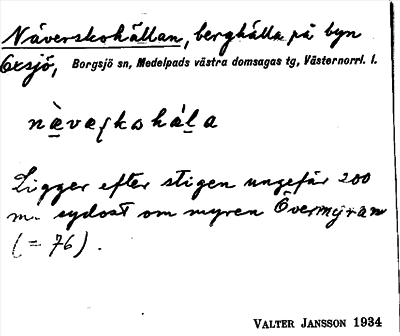 Näverskohällan, berghälla på byn
Oxsjö, Borgsjö sn, Medelpads västra domsagas tg, Västernorrl. l.
Ligger efter stigen ungefär 200
m. sydost om myren Övermyran
(= 76).
VALTER JANSSON 1934